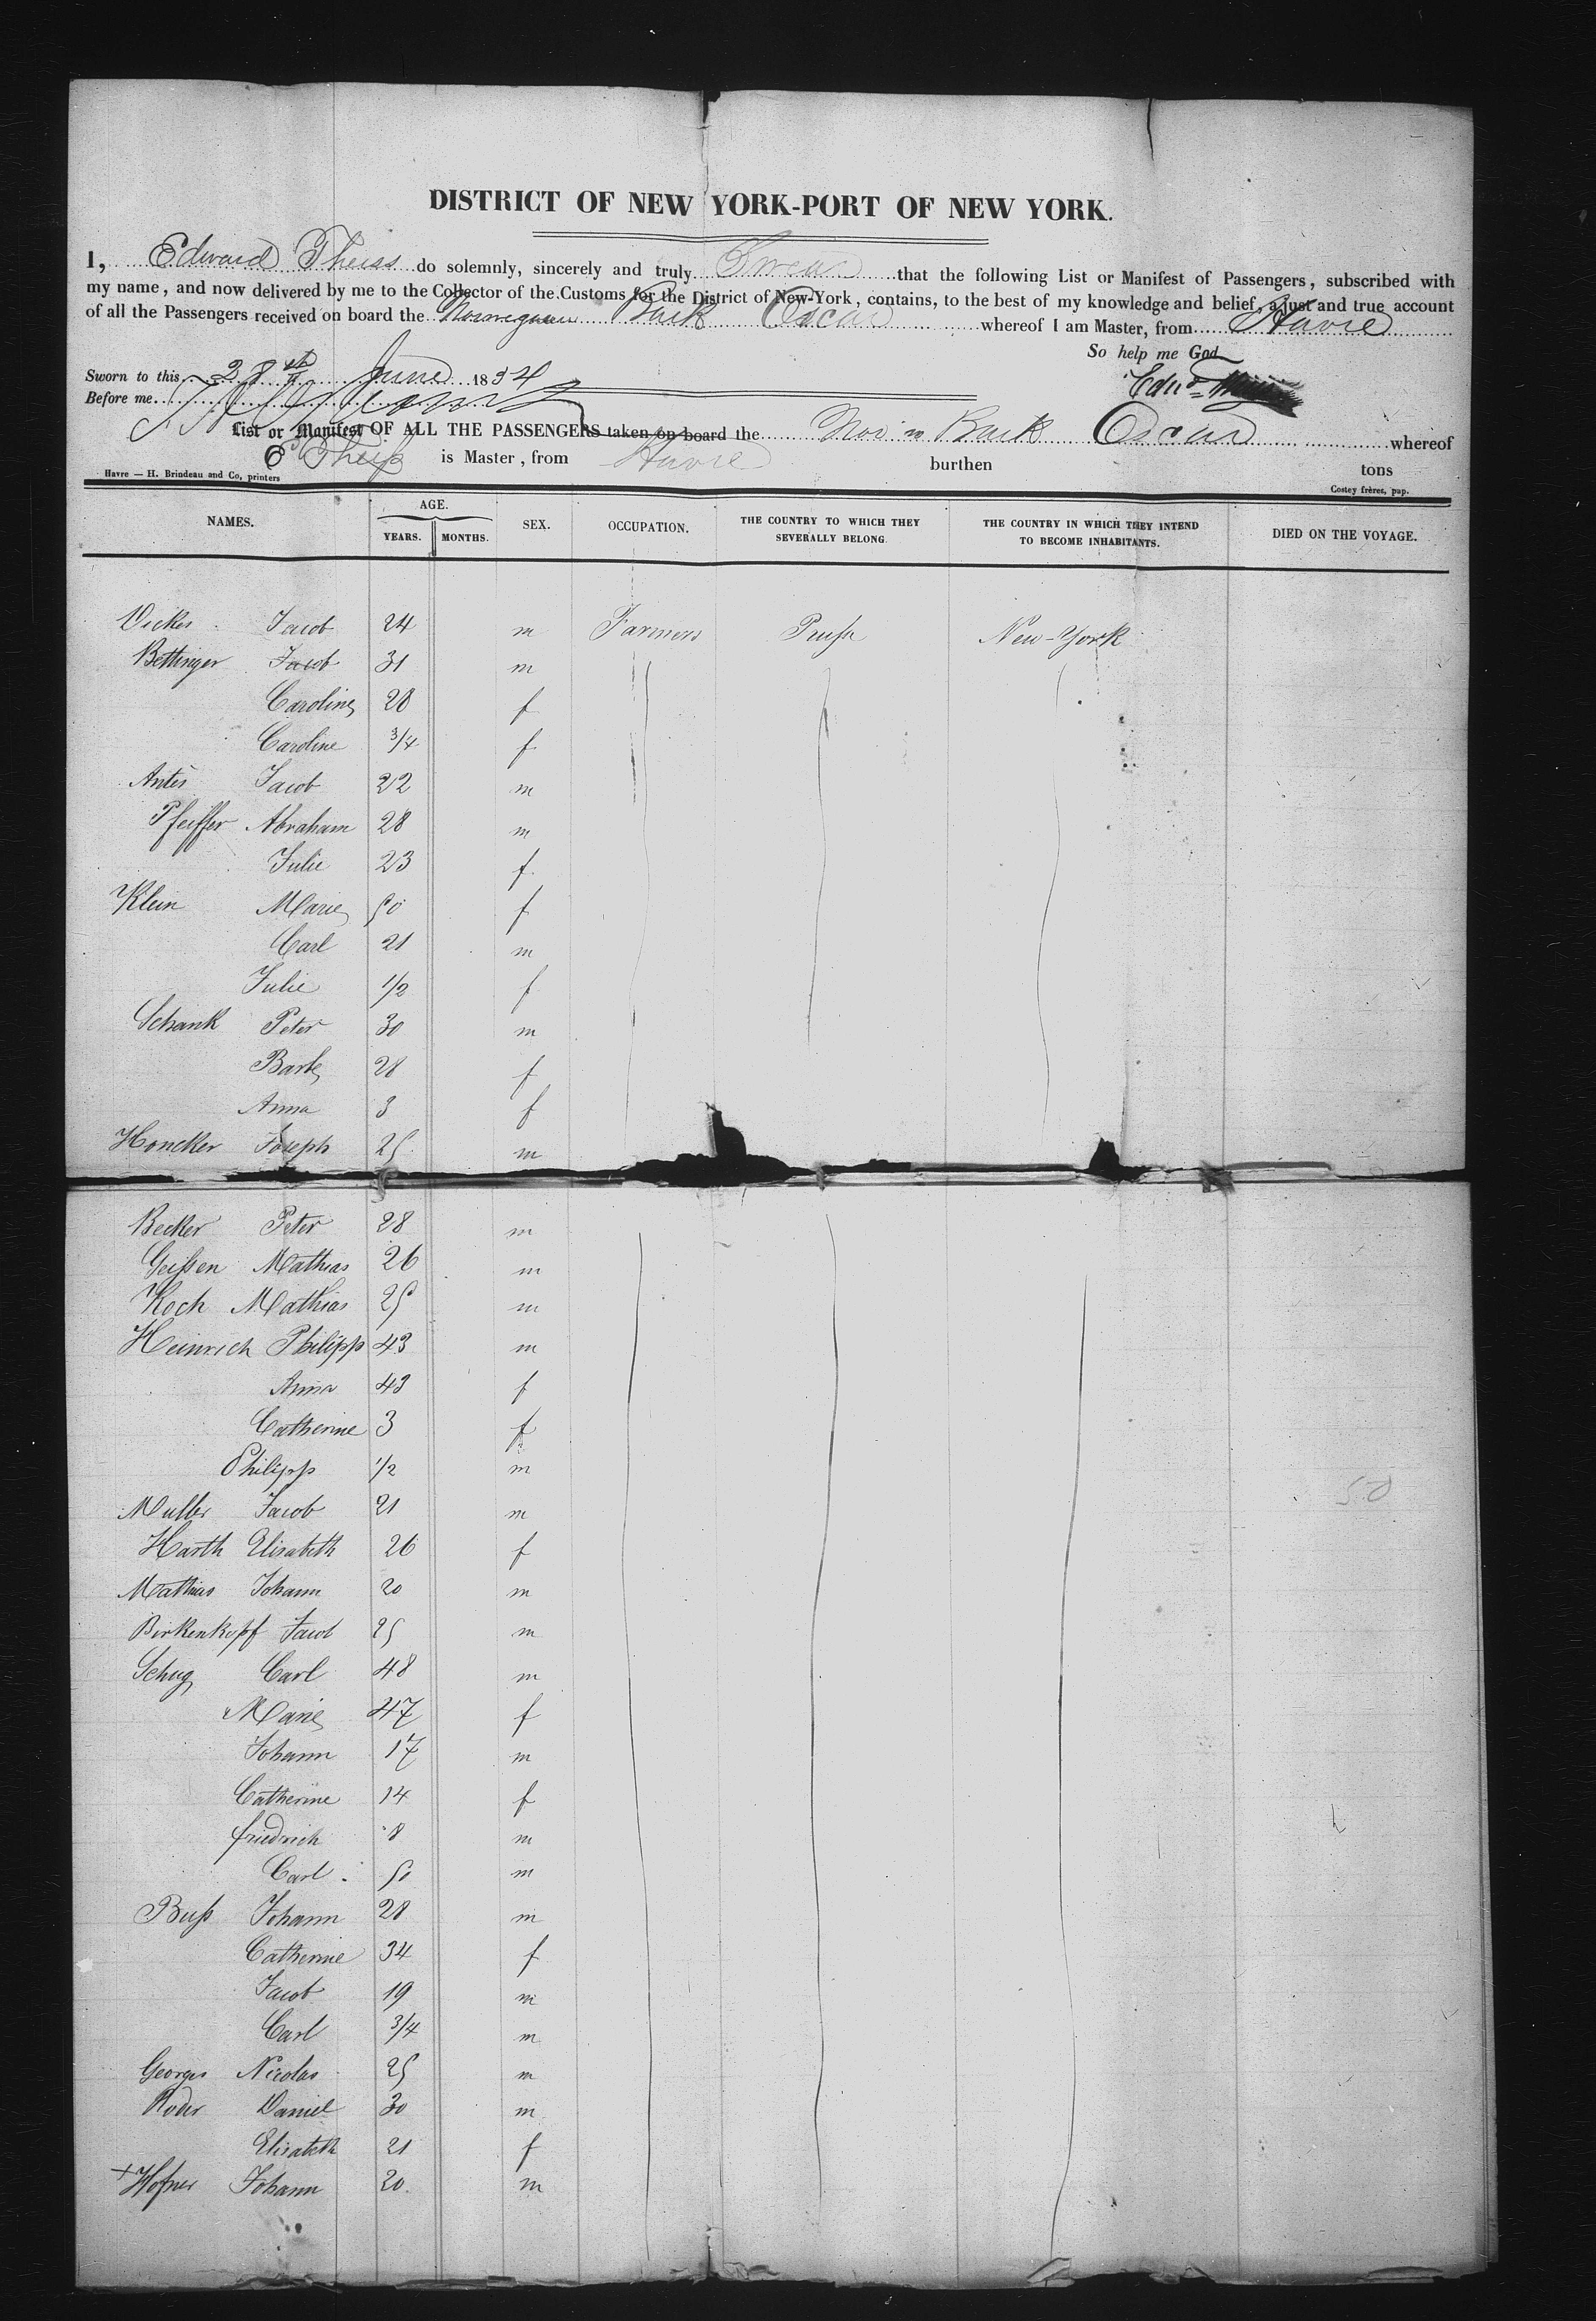 DISTRICT OF NEW YORK-PORT OF NEW YORK.
I, Edward Theiss do solemnly, sincerely and truly Swear that the following List or Manifest of Passengers, subscribed with
my name, and now delivered by me to the Collector of the Customs for the District of New-York, contains, to the best of my knowledge and belief, a just and true account
of all the Passengers received on board the Norwegian Bark Oscar whereof I am Master, from Havre
So help me God
Sworn to this 28th June 1854
Before me
Edwd
List or Manifest OF ALL THE PASSENGERS taken on board the Bark Oscar whereof
E Theiß is Master, from Havre burthen tons
Havre — H. Brindeau and Co, printers
Costey frères, pap.
NAMES. AGE. YEARS. MONTHS. SEX. OCCUPATION. THE COUNTRY TO WHICH THEY SEVERALLY BELONG. THE COUNTRY IN WHICH THEY INTEND TO BECOME INHABITANTS. DIED ON THE VOYAGE.
Jacob 24 m Farmers Prussia New-York
Bettinger Jacob 31 m
Caroline 28 f
Caroline 3/4 f
Antes Jacob 22 m
Pfeiffer Abraham 28 m
Julie 23 f
Klein Marie 50 f
Carl 21 m
Julie 1/2 f
Schank Peter 30 m
Barb 28 f
Anna 3 f
Honcker Joseph 25 m
Becker Peter 28 m
Geißen Mathias 26 m
Koch Mathias 25 m
Heinrich Philipp 43 m
Anna 43 f
Catherine 3 f
Philipp 1/2 m
Muller Jacob 21 m
Harth Elisabeth 26 f
Mathias Johann 20 m
Birkenkopf Jacob 25 m
Schug Carl 48 m
Marie 47 f
Johann 17 m
Catherine 14 f
friedrich 8 m
Carl m
Buß Johann 28 m
Catherine 34 f
Jacob 19 m
Carl 3/4 m
Georges Nicolas 25 m
Roder Daniel 30 m
Elisabeth 21 f
Hofner Johann 20 m